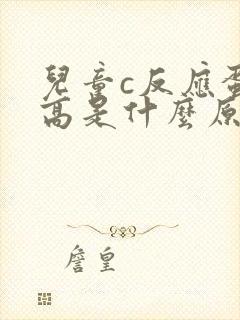 兒童c反應蛋
高是什麼原
詹皇